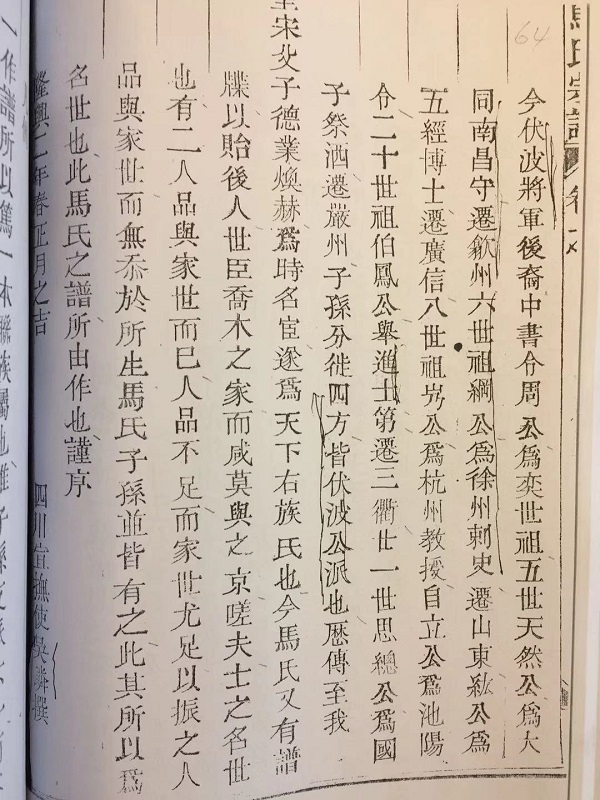 64
馬氏宗譜 卷之
今伏波將軍後裔中書令周公為奕世祖五世天然公為大
同南昌守遷歙州六世祖綱公為徐州刺史遷山東紘公為
五經博士遷廣信八世祖屶公為杭州教擾自立公為池陽
令二十世祖伯鳳公舉進士第遷三衢廿一世思總公為國
子祭酒遷嚴州子孫分徙四方皆伏波公派也歷傳至我
至宋父子德業煥赫為時名宦遂為天下右族氏也今馬氏又有譜
牒以貽後人世臣喬木之家而咸莫與之京嗟夫士之名世
也有二人品與家世而巳人品不足而家世尤足以振之人
品與家世而無忝於所生馬氏子孫並皆有之此其所以為
名世也此馬氏之譜所由作也謹序
隆興二年春正月之吉 四川宣撫使吳璘撰
一作譜所以篤一本聯族屬也惟子孫